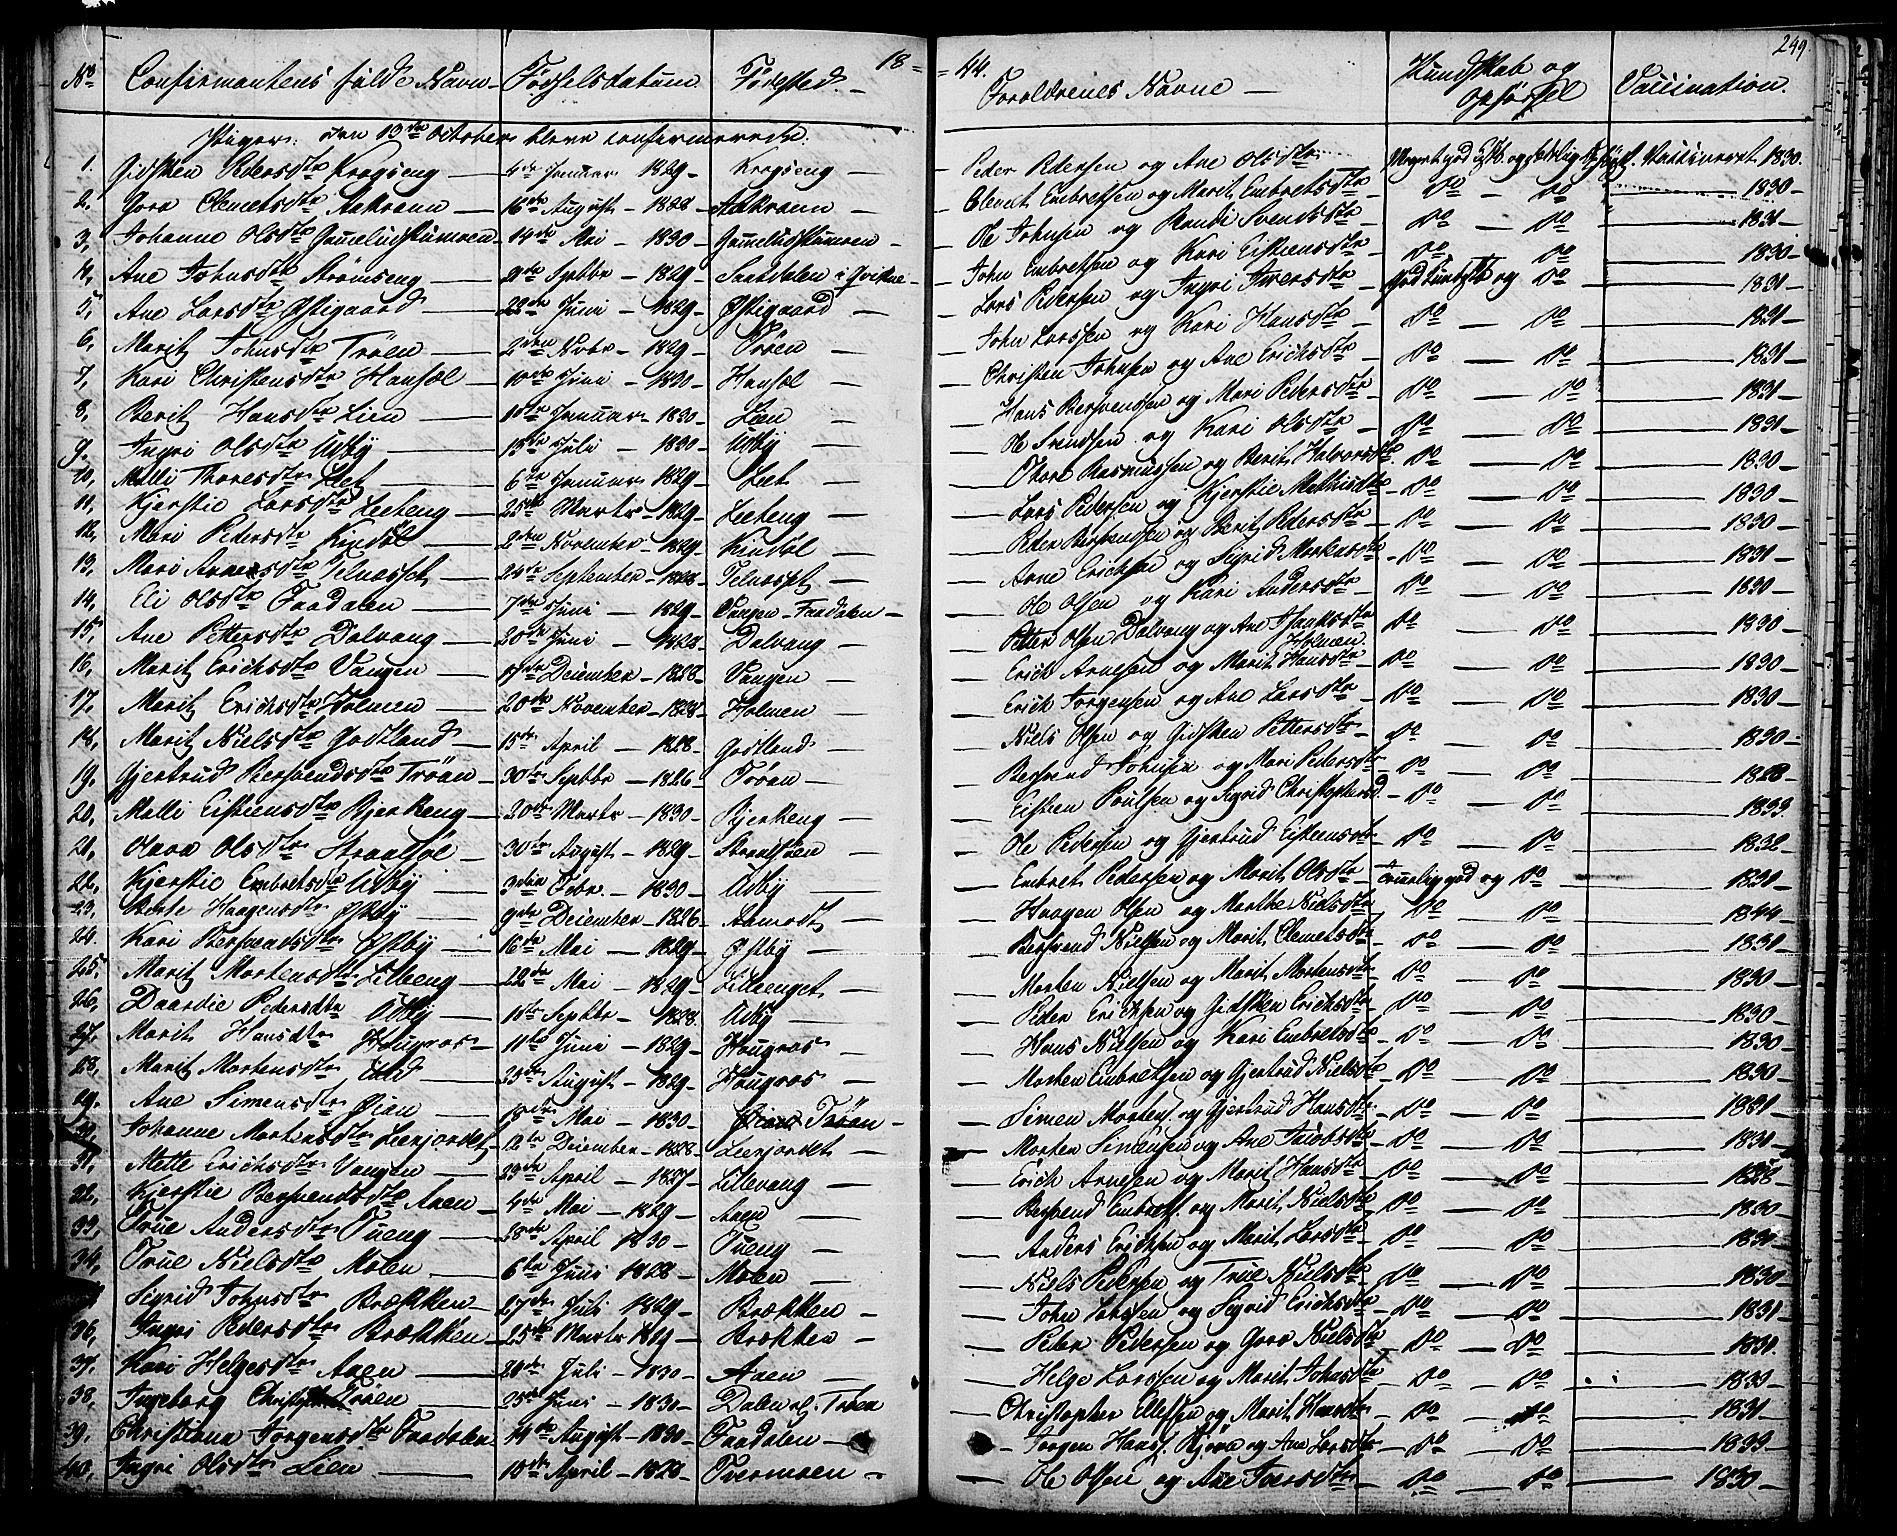 18 = = 44. 249
No Confirmantens fulde Navn Fødselsdatum. Fødested. Forældrenes Navne Kundskab og Opførsel Vaccination.
Piger: den 13de October bleve confirmerede:
1. Gidsken Pedersdtr Krogseng 4de Januar 1829 Krogseng Peder Pedersen og Ane Olsdtr Meget god og Vaccineret 1830
2, Gora Clemetsdtr Aakrann 16de August 1828 Aakrann Clemet Embretsen og Marit Embretsdtr Do Do 1830
3, Johanne Olsdtr 14de Mai 1830 Ole Johnsen og Randi Svendsdtr Do Do 1831
4, Ane Johnsdtr Strømseng Septbr 1829 i Qvikne John Embretsen og Kari Eistensdtr Do Do 1830
5, Ane Larsdtr Østigaard 22de Juni 1829 Østigaard Lars Pedersen og Ingri Iversdtr god Kundskb og Do 1831
6, Marit Johnsdtr Trøen 2den Novbr 1829 Trøen John Larssen og Kari Hansdtr Do Do 1831
7, Kari Christensdtr Hansæl 10de Juni 1830 Hansæl Christen Johnsen og Ane Erichsdtr Do Do 1831
8, Berit Hansdtr Lien Januar 1830 Lien Hans Bersvensen og Mari Pedersdtr Do Do 1831
9. Ingri Olsdtr Udby 15de Juli 1830 Udby Ole Svendsen og Kari Olsdtr Do Do 1831
10, Malli Thoresdtr Leet 6te Januar 1829 Leet Thore Rasmussen og Berit Halvorsdtr Do Do 1830
11, Kjerstie Larsdtr Leeteng 25de Marts 1829 Leeteng Lars Pedersen og Kjerstie Mathisdtr Do Do 1830
12, Mari Pedersdtr Kindøl 2den November 1829 Kindøl Peder Bersvendsen og Berit Pedersdtr Do Do 1830
13, Mari Arnesdtr Telnesset 24de September 1828 Telnesset Arne Erichsen og Sigrid Do Do 1831
14, Eli Olsdtr Faadalen 7de Juni 1829 Vangen-Faadalen Ole Olsen og Kari Andersdtr Do Do 1830
15, Ane Pettersdtr Dalvang 20de Juni 1828 Dalvang Petter Olsen Dalvang og Ane Holmen Do Do 1830
16, Marit Erichsdtr Vangen 17de December 1828 Vangen Erich Arnesen og Marit Hansdtr Do Do 1830
17, Marit Erichsdtr Holmen 20de November 1828 Holmen Erich Jørgensen og Ane Larsdtr Do Do 1830
18, Marit Nielsdtr Godtland 15de April 1828 Godtland Niels Olsen og Gidsken Pettersdtr Do Do 1830
19. Gjertrud Bersvendsdtr Trøan 30te Septbr 1826 Trøan Bersvend Johnsen og Mari Pedersdtr Do Do 1828
20, Malli Eistensdtr Bjerkeng 20de Marts 1830 Bjerkeng Eisten Poulsen og Sigrid Christophersd Do Do 1833
21, Olava Olsdtr 30te August 1829 Ole Pedersen og Gjertrud Eistensdtr Do Do 1832
22, Kjerstie Embretsdtr Udby 3die Febr 1830 Udby Embret Pedersen og Marit Olsdtr Temmelig god og Do 1831
23, Berte Haagensdtr Østby 9de December 1826 Aamodt Haagen Olsen og Marthe Nielsdtr Do Do 1844
24. Kari Bersvendsdtr Østby 16de Mai 1829 Østby Bersvend Nielsen og Marit Clemetsdtr Do Do 1831
25, Marit Mortensdtr Lilleeng 22de Mai 1829 Lilleenget Morten Nielsen og Marit Mortensdtr Do Do 1830
26, Daardie Pedersdtr Udby Septbr 1828 Udby Peder Erichsen og Gidsken Erichsdtr Do Do 1830
27, Marit Hansdtr Hougros 11te Juni 1829 Hougros Hans Nielsen og Kari Embretsdtr Do Do 1830
28, Marit Mortensdtr August 1829 Hougros Morten Embretsen og Gjertrud Nielsdtr Do Do 1830
29. Ane Simensdtr Øian Mai 1830 Øian Trøan Simen Mortens. og Gjertrud Hansdtr Do Do 1831
30, Johanne Mortensdtr Leenjordet 12te December 1828 Leenjordet Morten Simensen og Ane Jacobsdtr Do Do 1831
31, Mette Erichsdtr Vangen April 1827 Lillevang Erich Arnesen og Marit Hansdtr Do Do 1828
32, Kjerstie Bersvendsdtr Aaen 4de Mai 1829 Aaen Bersvend Embrets. og Marit Nielsdtr Do Do 1830
33, True Andersdtr Tueng 28de April 1830 Tueng Anders Erichsen og Marit Larsdtr Do Do 1831
34, True Nielsdtr Moen 6te Juni 1828 Moen Niels Pedersen og True Nielsdtr Do Do 1830
Sigrid Johnsdtr Brækken 27de Juli 1829 Brækken John Larssen og Sigrid Erichsdtr Do Do 1831
36, Ingri Pedersdtr Brækken 25de Marts 1829 Brækken Peder Pedersen og Gora Nielsdtr Do Do 1831
37, Kari Helgesdtr Aaen Juli 1830 Aaen Helge Larssen og Marit Johnsdtr Do Do 1833
38, Ingeborg Trøen 25de Juni 1830 Christopher Ellefsen og Marit Hansdtr Do Do 1831
39, Christiana Jørgensdtr Faadalen 14de August 1830 Faadalen Jørgen Hans. og Ane Larsdtr Do Do 1833
40, Ingri Olsdtr Lien 18de April 1829 Tvermoen Ole Olsen og Ane Iversdtr Do Do 1830